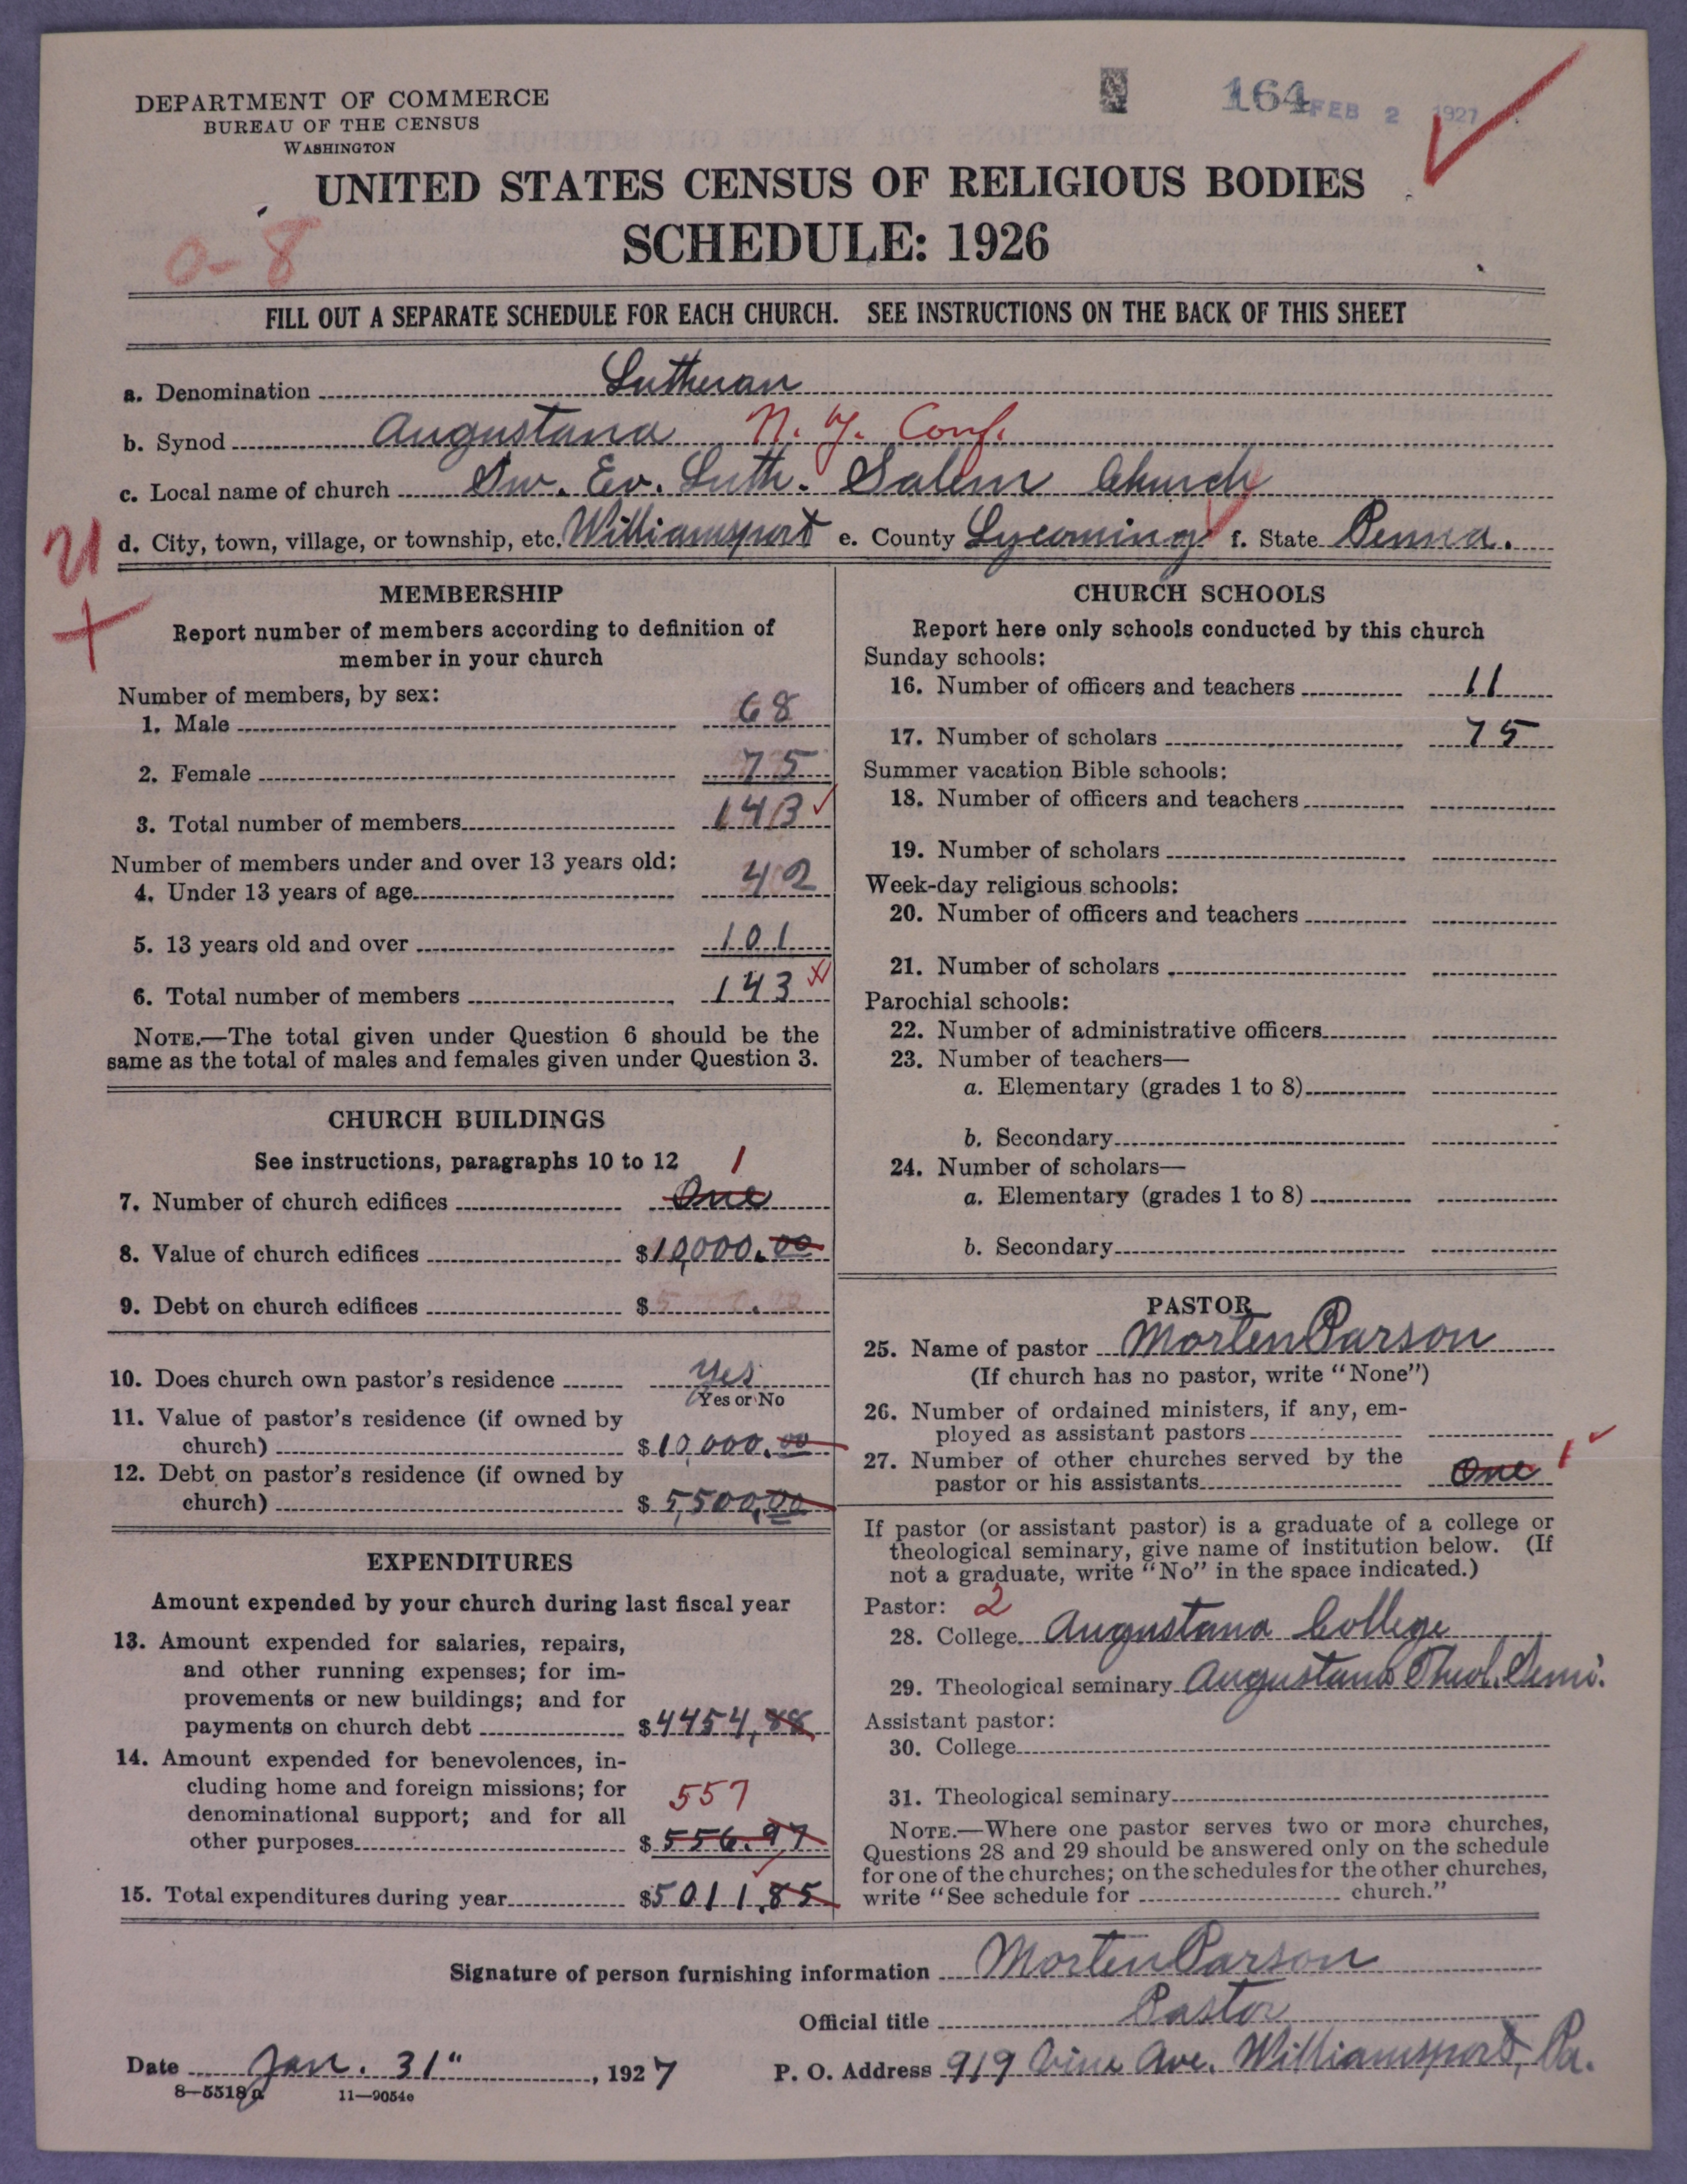 DEPARTMENT OF COMMERCE
BUREAU OF THE CENSUS
WASHINGTON
164 FEB 2 1927
UNITED STATES CENSUS OF RELIGIOUS BODIES
SCHEDULE: 1926
0-8
FILL OUT A SEPARATE SCHEDULE FOR EACH CHURCH. SEE INSTRUCTIONS ON THE BACK OF THIS SHEET
a. Denomination Lutheran
b. Synod Augustana N. Y. Conf.
c. Local name of church Sw. Ev. Luth. Salem Church
d. City, town, village, or township, etc. Williamsport e. County Lycoming f. State Penna.
MEMBERSHIP
Report number of members according to definition of
member in your church
Number of members, by sex:
1. Male 68
2. Female 75
3. Total number of members 143
Number of members under and over 13 years old:
4. Under 13 years of age 42
5. 13 years old and over 101
6. Total number of members 143
NOTE.—The total given under Question 6 should be the
same as the total of males and females given under Question 3.
CHURCH BUILDINGS
See instructions, paragraphs 10 to 12 1
7. Number of church edifices One
8. Value of church edifices $10,000.00
9. Debt on church edifices $
10. Does church own pastor's residence Yes
Yes or No
11. Value of pastor's residence (if owned by
church) $10,000.00
12. Debt on pastor's residence (if owned by
church) $5,500,00
EXPENDITURES
Amount expended by your church during last fiscal year
13. Amount expended for salaries, repairs,
and other running expenses; for im-
provements or new buildings; and for
payments on church debt $4454,88
14. Amount expended for benevolences, in-
cluding home and foreign missions; for
denominational support; and for all
557
other purposes $556.97
15. Total expenditures during year $5011.85
CHURCH SCHOOLS
Report here only schools conducted by this church
Sunday schools:
16. Number of officers and teachers 11
17. Number of scholars 75
Summer vacation Bible schools:
18. Number of officers and teachers
19. Number of scholars
Week-day religious schools:
20. Number of officers and teachers
21. Number of scholars
Parochial schools:
22. Number of administrative officers
23. Number of teachers—
a. Elementary (grades 1 to 8)
b. Secondary
24. Number of scholars—
a. Elementary (grades 1 to 8)
b. Secondary
PASTOR
25. Name of pastor Morten Parson
(If church has no pastor, write "None")
26. Number of ordained ministers, if any, em-
ployed as assistant pastors
27. Number of other churches served by the
pastor or his assistants One 1
If pastor (or assistant pastor) is a graduate of a college or
theological seminary, give name of institution below. (If
not a graduate, write "No" in the space indicated.)
Pastor: 2
28. College Augustana College
29. Theological seminary Augustana Theol. Semi.
Assistant pastor:
30. College
31. Theological seminary
NOTE.—Where one pastor serves two or more churches,
Questions 28 and 29 should be answered only on the schedule
for one of the churches; on the schedules for the other churches,
write "See schedule for church."
Signature of person furnishing information Morten Parson
Official title Pastor
Date Jan. 31", 1927 P. O. Address 919 Vine Ave. Williamsport, Pa.
8—5518a 11—9054e